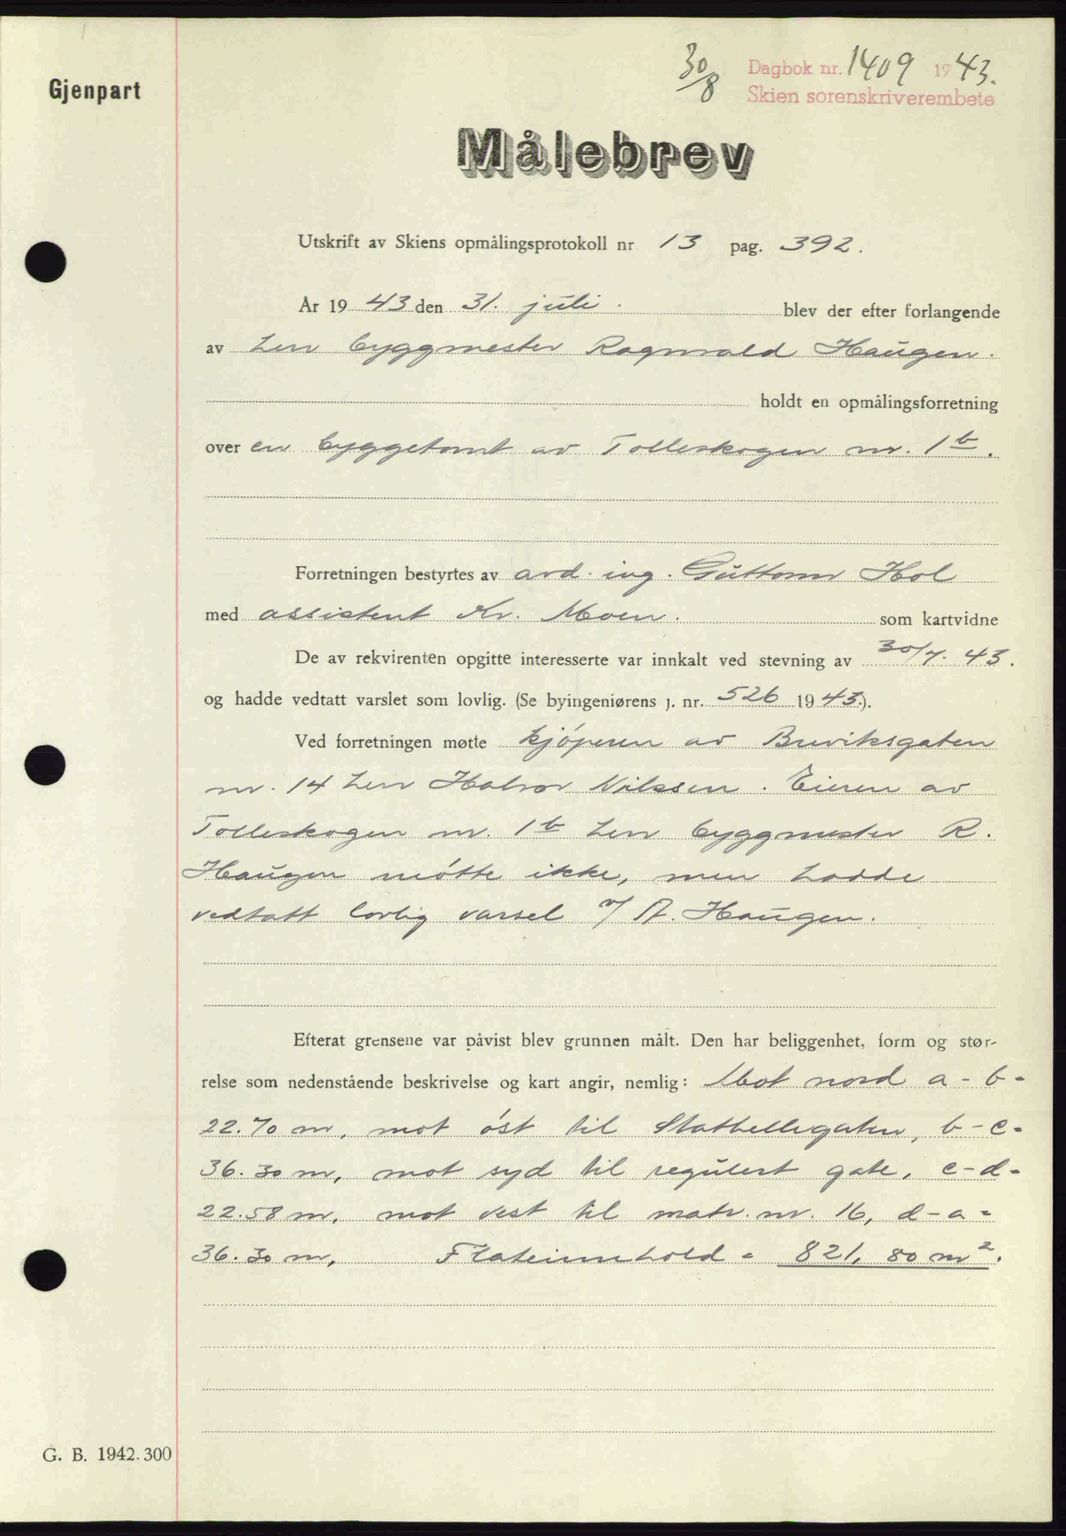 Gjenpart
30/8 Dagbok nr. 1409 1943.
Skien sorenskriverembete
Målebrev
Utskrift av Skiens opmålingsprotokoll nr 13 pag. 392.
År 1943 den 31. juli. blev der efter forlangende
av herr byggmester Ragnvald Haugen.
holdt en opmålingsforretning
over en byggetomt av Tolleskogen nr. 1b.
Forretningen bestyrtes av avd. ing. Guttorm Hol
med assistent Kr. Moen. som kartvidne
De av rekvirenten opgitte interesserte var innkalt ved stevning av 30/7. 43.
og hadde vedtatt varslet som lovlig. (Se byingeniørens j. nr. 526 1943.).
Ved forretningen møtte kjøperen av Breviksgaten
nr. 14 herr Halvor Nilssen. Eieren av
Tolleskogen nr. 1b herr byggmester R.
Haugen møtte ikke, men hadde
vedtatt lovlig varsel v/ A. Haugen.
Efterat grensene var påvist blev grunnen målt. Den har beliggenhet, form og stør-
relse som nedenstående beskrivelse og kart angir, nemlig: Mot nord a-b=
22.70 m, mot øst til Stathellegaten, b-c=
36.30 m, mot syd til regulert gate, c-d=
22.58 m, mot vest til matr. nr. 16, d-a=
36.30 m, Flateinnhold = 821,80 m².
G. B. 1942.300